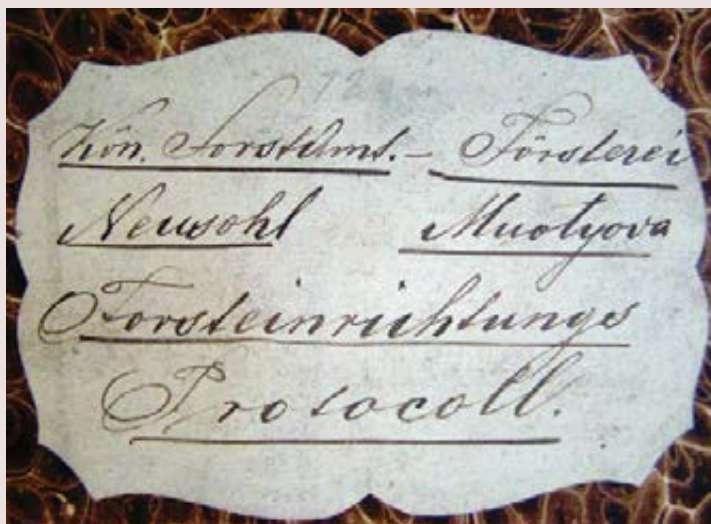 12
Kön. Forstamt. – Försterei
Neusohl Muotyova
Forsteinrichtungs
Protocoll.